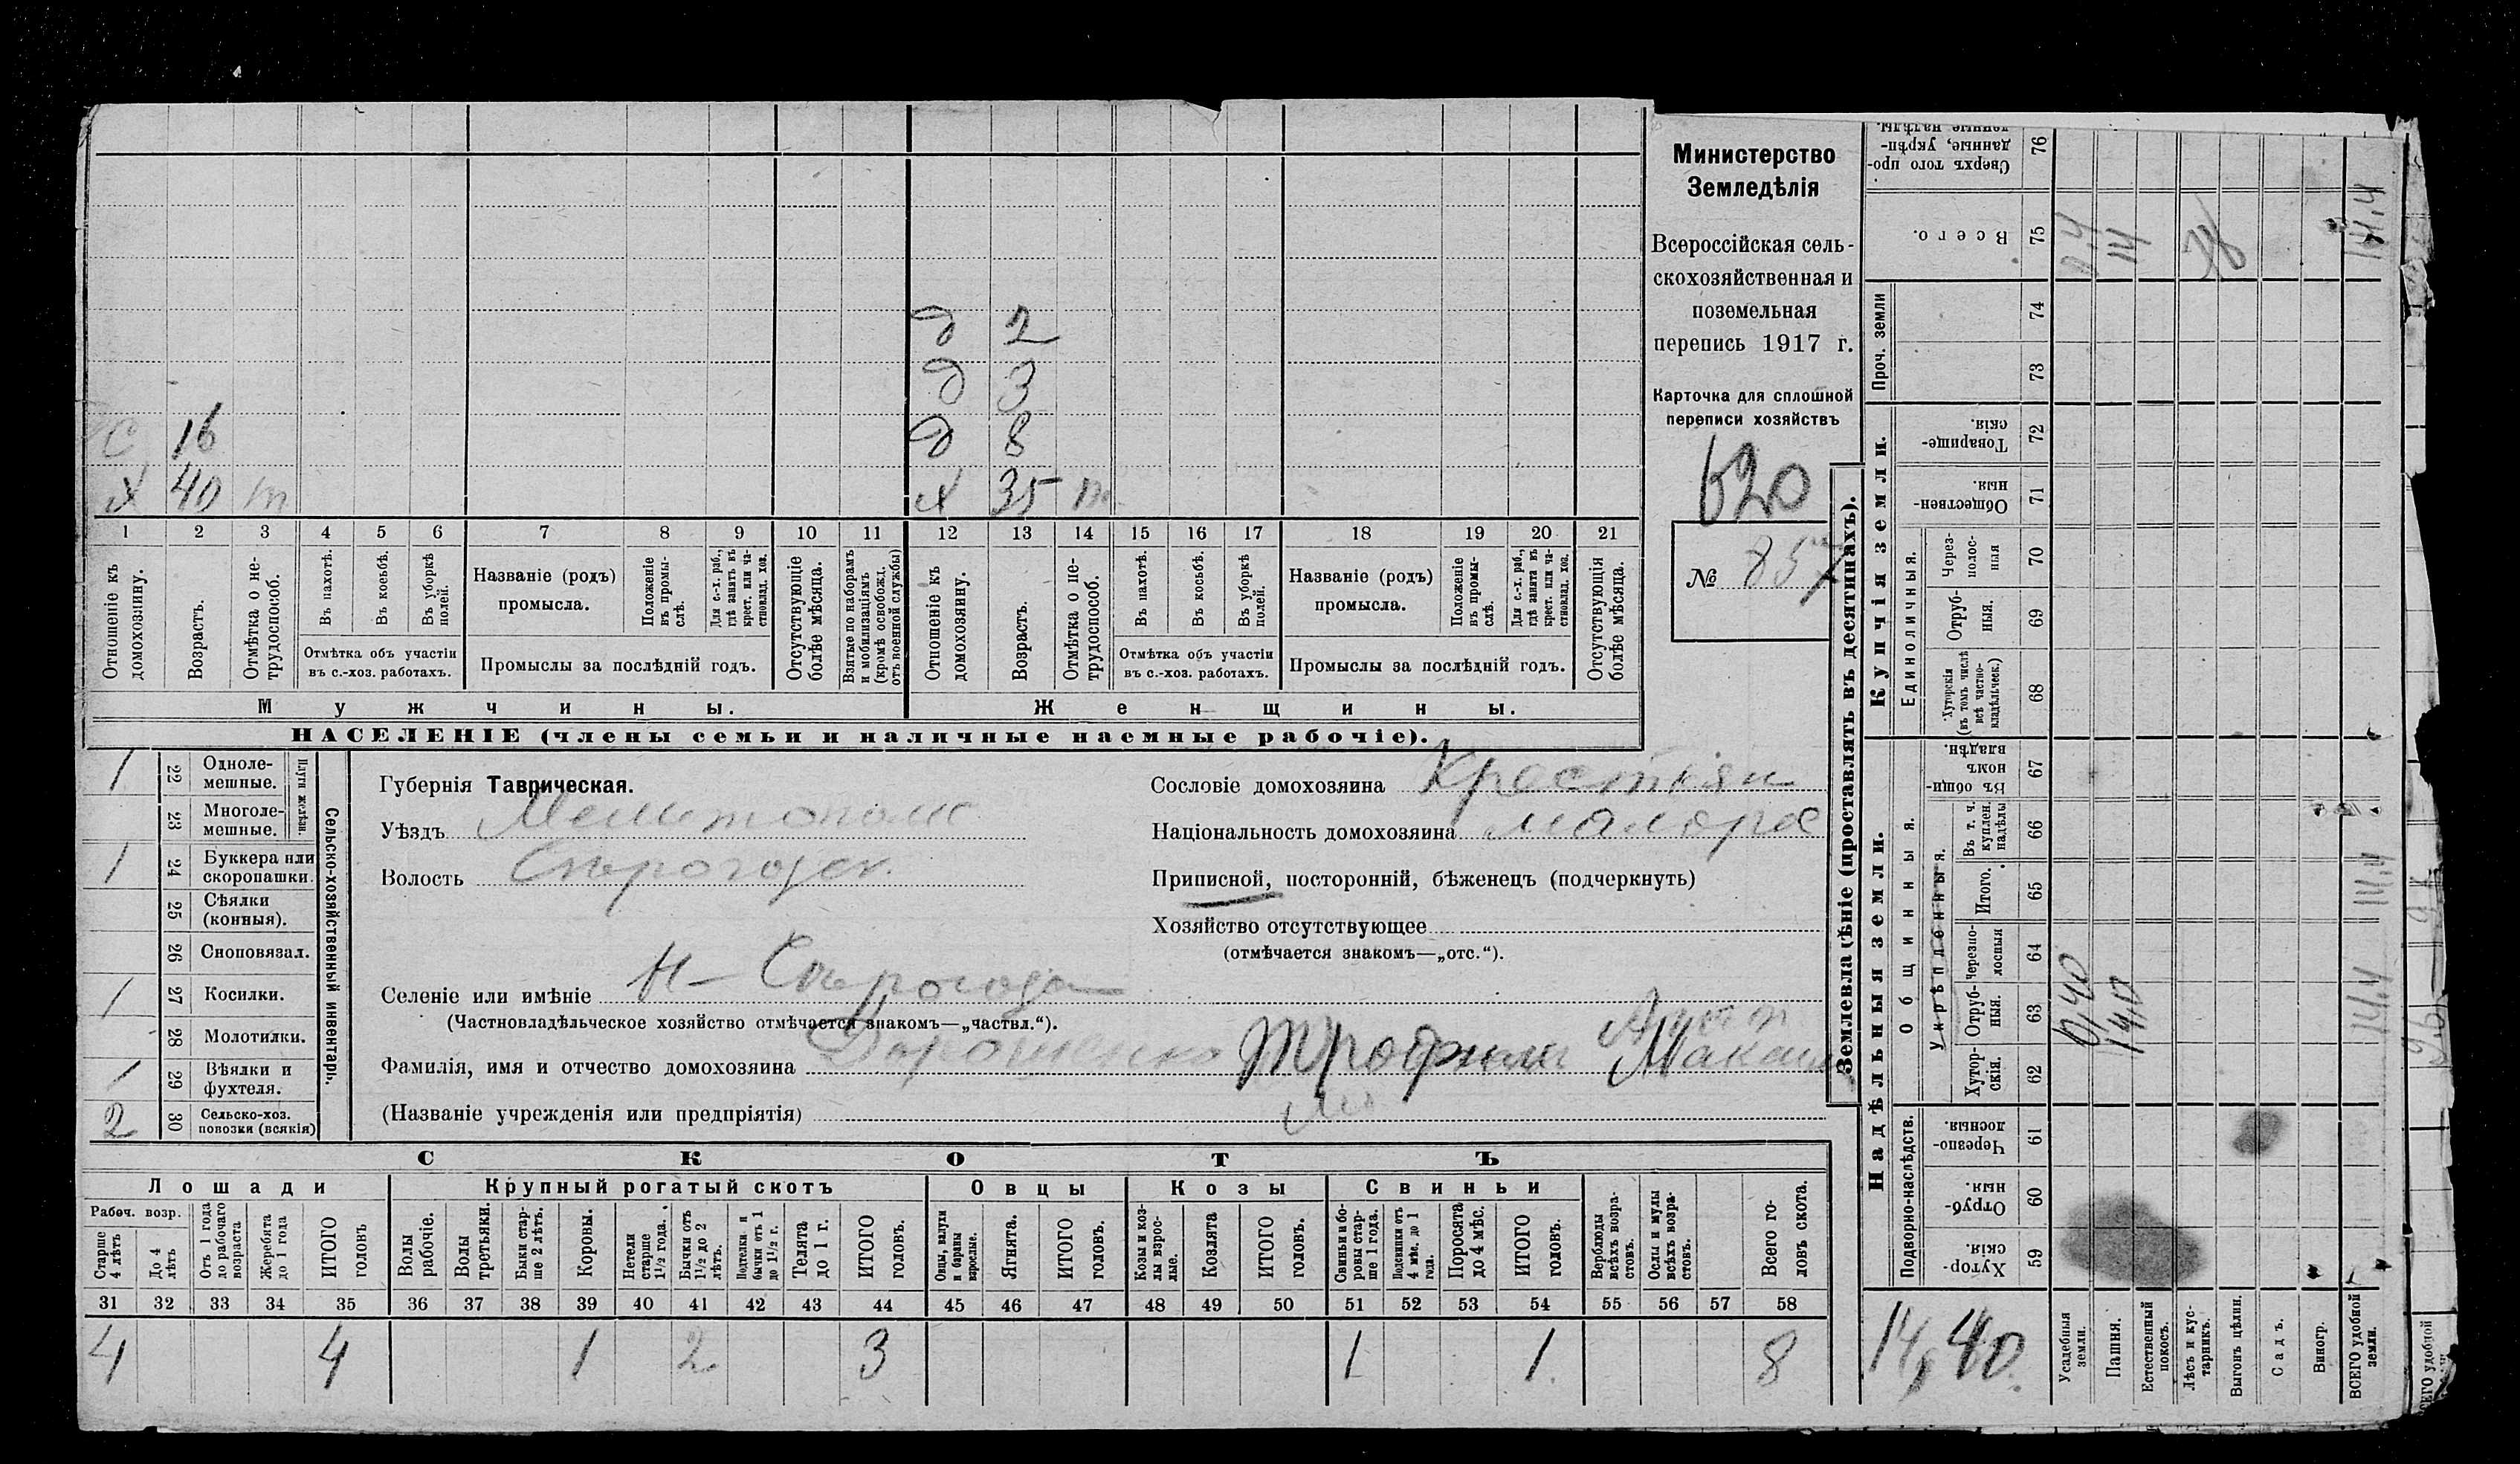 д 2
д 3
С 16 д 8
Х 40 т Х 35 т
1 2 3 4 5 6 7 8 9 10 11 12 13 14 15 16 17 18 19 20 21
Отношеніе къ домохозяину.
Возрастъ.
Отмѣтка о не-
трудоспособ.
Въ пахотѣ.
Въ косьбѣ.
Въ уборкѣ
полей.
Отмѣтка объ участіи
въ с.-хоз. работахъ.
Названіе (родъ)
промысла.
Положеніе
въ промы-
слѣ.
Для с.-х. раб.,
гдѣ занятъ въ
крест. или ча-
стновлад. хоз.
Промыслы за послѣдній годъ.
Отсутствующіе
болѣе мѣсяца.
Взятые по наборамъ
и мобилизаціямъ
(кромѣ освобожд.
отъ военной службы)
Отношеніе къ
домохозяину.
Возрастъ.
Отмѣтка о не-
трудоспособ.
Въ пахотѣ.
Въ косьбѣ.
Въ уборкѣ
полей.
Отмѣтка объ участіи
въ с.-хоз. работахъ.
Названіе (родъ)
промысла.
Положеніе
въ промы-
слѣ.
Для с.-х. раб.,
гдѣ занята въ
крест. или ча-
стновлад. хоз.
Промыслы за послѣдній годъ.
Отсутствующія
болѣе мѣсяца.
Мужчины.
Женщины.
НАСЕЛЕНІЕ (члены семьи и наличные наемные рабочіе).
Министерство
Земледѣлія
Всероссійская сель-
скохозяйственная и
поземельная
перепись 1917 г.
Карточка для сплошной
переписи хозяйствъ
620
№ 857
1 22 Одноле-
мешные.
23 Многоле-
мешные.
Плуги желѣзн.
1 24 Буккера или
скоропашки.
25 Сѣялки
(конныя).
26 Сноповязал.
1 27 Косилки.
28 Молотилки.
1 29 Вѣялки и
фухтеля.
2 30 Сельско-хоз.
повозки (всякія)
Сельско-хозяйственный инвентарь.
Губернія Таврическая.
Уѣздъ Мелитопол
Волость Сѣрогозск.
Селеніе или имѣніе Н-Сѣрогозы
(Частновладѣльческое хозяйство отмѣчается знакомъ—„частвл.“).
Фамилія, имя и отчество домохозяина Дорошенко Трофим Максим
(Названіе учрежденія или предпріятія)
Сословіе домохозяина Крестьян
Національность домохозяина малорос
Приписной, посторонній, бѣженецъ (подчеркнуть)
Хозяйство отсутствующее
(отмѣчается знакомъ—„отс.“).
СКОТЪ
Лошади
Крупный рогатый скотъ
Овцы
Козы
Свиньи
Рабоч. возр.
Старше
4 лѣтъ
До 4
лѣтъ
Отъ 1 года
до рабочаго
возраста
Жеребята
до 1 года
ИТОГО
головъ
Волы
рабочіе.
Волы
третьяки.
Быки стар-
ше 2 лѣтъ.
Коровы.
Нетели
старше
1½ года.
Бычки отъ
1½ до 2
лѣтъ.
Подтелки и
бычки отъ 1
до 1½ г.
Телята
до 1 г.
ИТОГО
головъ.
Овцы, валухи
и бараны
взрослые.
Ягнята.
ИТОГО
головъ.
Козы и коз-
лы взрос-
лые.
Козлята
ИТОГО
головъ.
Свиньи и бо-
ровы стар-
ше 1 года.
Подсвинки отъ
4 мѣс. до 1
года.
Поросята
до 4 мѣс.
ИТОГО
головъ.
Верблюды
всѣхъ возра-
стовъ.
Ослы и мулы
всѣхъ возра-
стовъ.
Всего го-
ловъ скота.
31 32 33 34 35 36 37 38 39 40 41 42 43 44 45 46 47 48 49 50 51 52 53 54 55 56 57 58
4 4 1 2 3 1 1 8
Землевладѣніе (проставлять въ десятинахъ).
Надѣльныя земли.
Купчія земли.
Проч. земли
Подворно-наслѣдств.
Общинныя.
Укрѣпленныя.
Единоличныя.
Хутор-
скія. 59
Отруб-
ныя. 60
Черезпо-
лосныя. 61
Хутор-
скія. 62
Отруб-
ныя. 63
Черезпо-
лосныя 64
Итого. 65
Въ т. ч.
куплен.
надѣлы 66
Въ общин-
номъ
владѣн. 67
Хуторскія
(въ томъ числѣ
всѣ частно-
владѣльческ.) 68
Отруб-
ныя. 69
Через-
полос-
ныя 70
Обществен-
ныя. 71
Товарище-
скія. 72
73
74
Всего. 75
Сверхъ того про-
данные, укрѣп-
ленные надѣлы. 76
14,40
Усадебныя
земли. 0,40
Пашня. 14,0 14
Естественный
покосъ.
Лѣсъ и кус-
тарникъ.
Выгонъ цѣлин.
Садъ.
Виногр.
ВСЕГО удобной
земли. 14.4 14.4 14.4